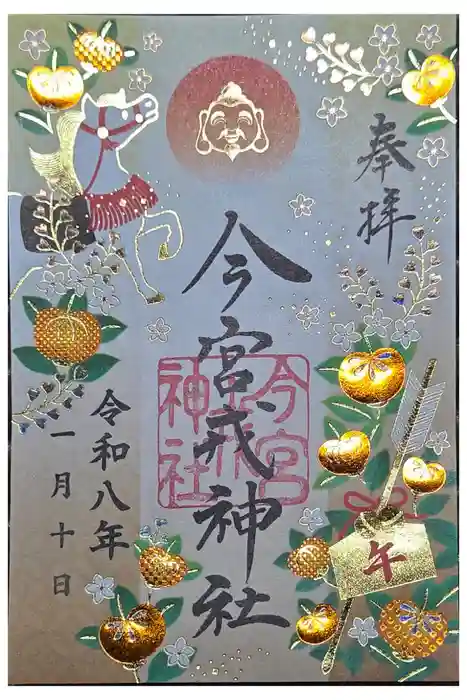 奉拝
今宮戎神社
今宮
戎
神社
令和八年
一月十日
午